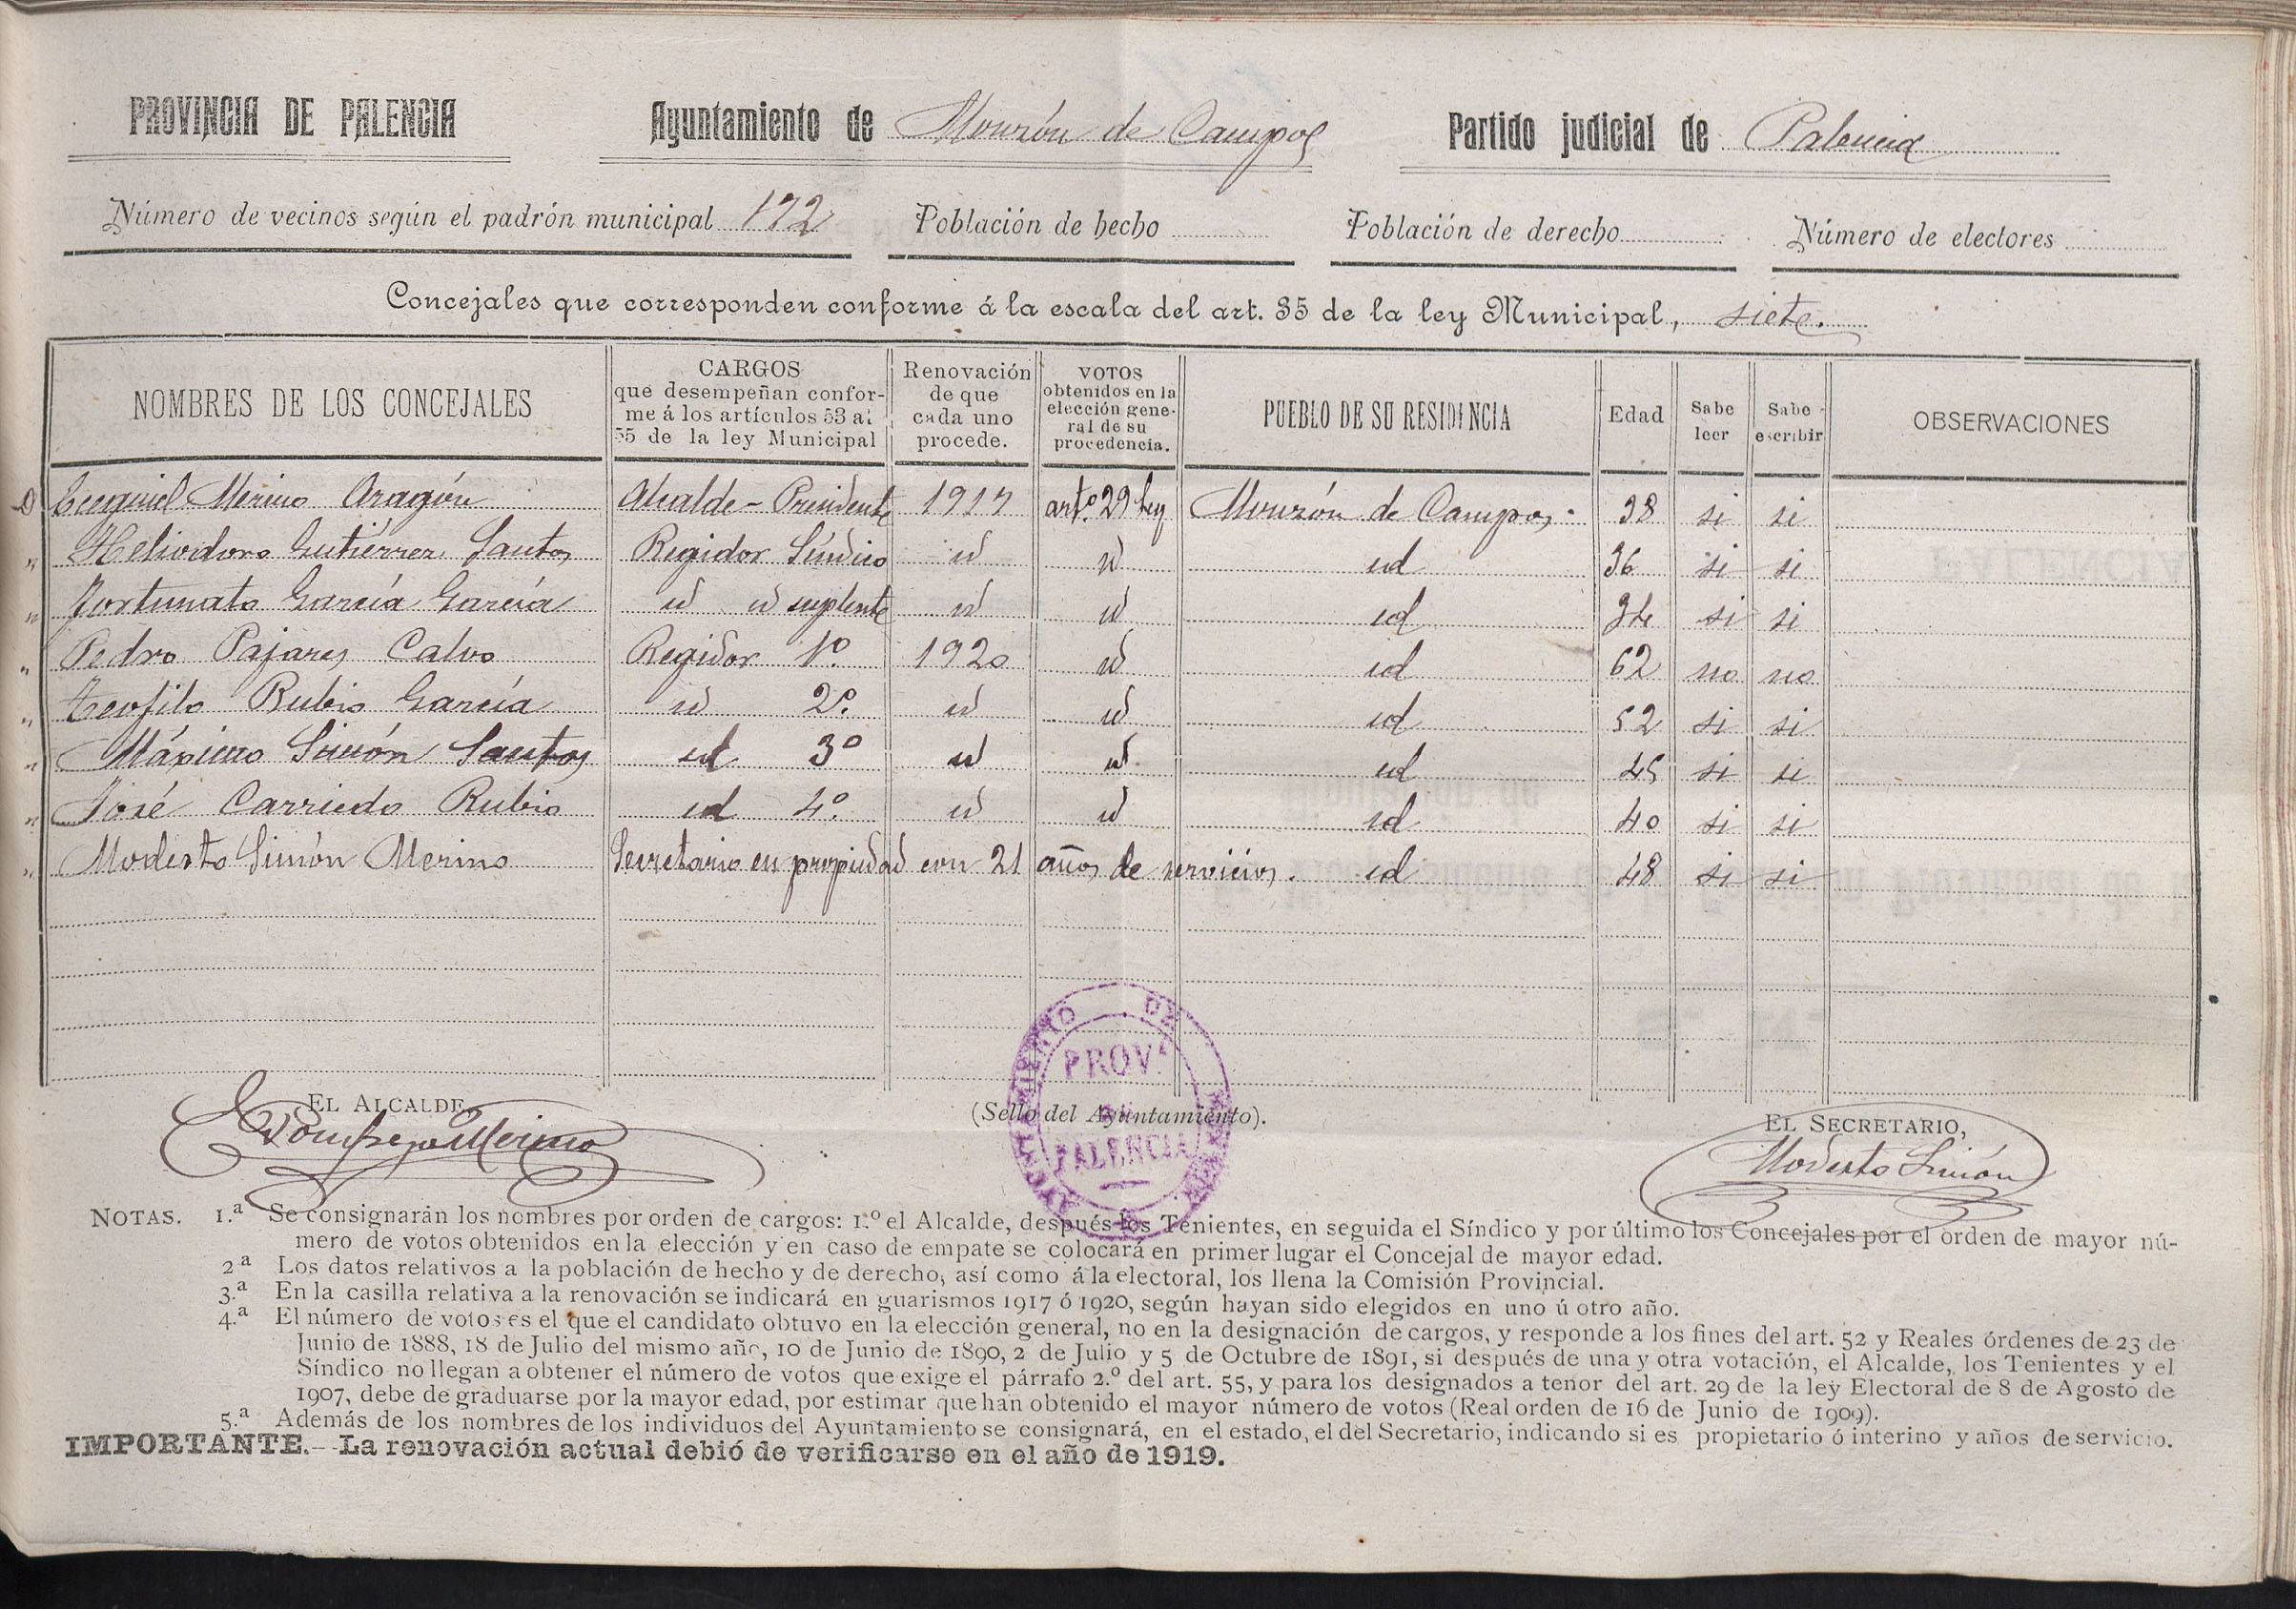 PROVINCIA DE PALENCIA Ayuntamiento de Monzón de Campos Partido judicial de Palencia
Número de vecinos según el padrón municipal 172 Población de hecho Población de derecho Número de electores
Concejales que corresponden conforme á la escala del art. 35 de la ley Municipal, siete.
NOMBRES DE LOS CONCEJALES CARGOS que desempeñan confor- me á los artículos 53 al 55 de la ley Municipal Renovación de que cada uno procede. VOTOS obtenidos en la elección gene- ral de su procedencia. PUEBLO DE SU RESIDENCIA Edad Sabe leer Sabe escribir OBSERVACIONES
D Ecequiel Merino Aragón Alcalde-Presidente 1917 artº. 29 ley Monzón de Campos. 38 si si
" Heliodoro Gutiérrez Santos Regidor Síndico id id id 36 si si
" Fortunato García García id id suplente id id id 34 si si
" Pedro Pajares Calvo Regidor 1º. 1920 id id 62 no no
" Teofilo Rubio García id 2º. id id id 52 si si
" Máximo Simón Santos id 3º id id id 45 si si
" José Carriedo Rubio id 4º. id id id 40 si si
" Modesto Simón Merino Secretario en propiedad con 21 años de servicios. id 48 si si
EL ALCALDE, (Sello del Ayuntamiento). EL SECRETARIO,
Merino Modesto Simón
AYUNTAMIENTO DE
PROV.ª
DE
PALENCIA
NOTAS. 1.ª Se consignarán los nombres por orden de cargos: 1.º el Alcalde, después los Tenientes, en seguida el Síndico y por último los Concejales por el orden de mayor nú-
mero de votos obtenidos en la elección y en caso de empate se colocará en primer lugar el Concejal de mayor edad.
2.ª Los datos relativos a la población de hecho y de derecho, así como á la electoral, los llena la Comisión Provincial.
3.ª En la casilla relativa a la renovación se indicará en guarismos 1917 ó 1920, según hayan sido elegidos en uno ú otro año.
4.ª El número de votos es el que el candidato obtuvo en la elección general, no en la designación de cargos, y responde a los fines del art. 52 y Reales órdenes de 23 de
Junio de 1888, 18 de Julio del mismo año, 10 de Junio de 1890, 2 de Julio y 5 de Octubre de 1891, si después de una y otra votación, el Alcalde, los Tenientes y el
Síndico no llegan a obtener el número de votos que exige el párrafo 2.º del art. 55, y para los designados a tenor del art. 29 de la ley Electoral de 8 de Agosto de
1907, debe de graduarse por la mayor edad, por estimar que han obtenido el mayor número de votos (Real orden de 16 de Junio de 1909).
5.ª Además de los nombres de los individuos del Ayuntamiento se consignará, en el estado, el del Secretario, indicando si es propietario ó interino y años de servicio.
IMPORTANTE.—La renovación actual debió de verificarse en el año de 1919.